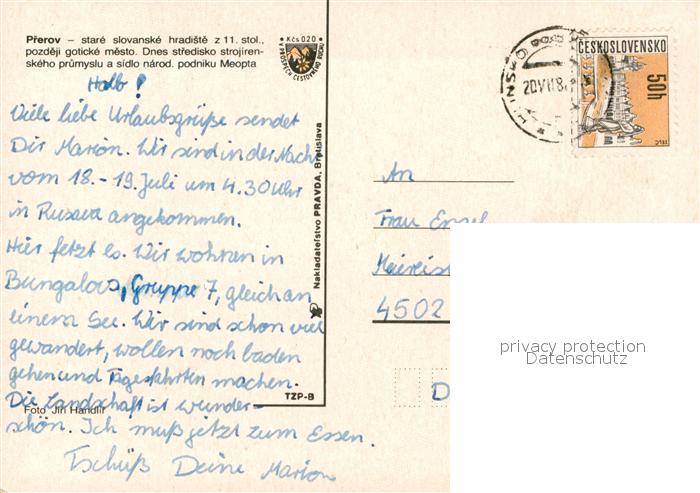 Přerov – staré slovanské hradiště z 11. stol.,
později gotické město. Dnes středisko strojíren-
ského průmyslu a sídlo národ. podniku Meopta
Kčs 0,20
VE PROSPĚCH CESTOVNÍHO RUCHU
ČESKOSLOVENSKO
50h
20.VII.8
Hallo!
Viele liebe Urlaubsgrüße sendet
Dir Marion. Wir sind in der Nacht
vom 18. - 19. Juli um 4.30 Uhr
in Rusava angekommen.
Hier fetzt es. Wir wohnen in
Bungalows, Gruppe 7, gleich an
einem See. Wir sind schon viel
gewandert, wollen noch baden
gehen und Tagesfahrten machen.
Die Landschaft ist wunder-
schön. Ich muß jetzt zum Essen.
Tschüß Deine Marion
Foto Jiří Handlíř
Nakladateľstvo PRAVDA, Bratislava
TZP-B
An
Frau
4502
D
privacy protection
Datenschutz